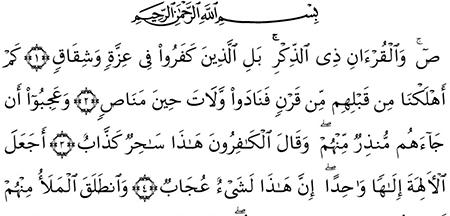 بِسْمِ ٱللَّهِ ٱلرَّحْمَٰنِ ٱلرَّحِيمِ
صٓ ۚ وَٱلْقُرْءَانِ ذِى ٱلذِّكْرِ ۚ بَلِ ٱلَّذِينَ كَفَرُوا۟ فِى عِزَّةٍ وَشِقَاقٍ ﴿١﴾ كَمْ
أَهْلَكْنَا مِن قَبْلِهِم مِّن قَرْنٍ فَنَادَوا۟ وَّلَاتَ حِينَ مَنَاصٍ ﴿٢﴾ وَعَجِبُوٓا۟ أَن
جَآءَهُم مُّنذِرٌ مِّنْهُمْ ۖ وَقَالَ ٱلْكَٰفِرُونَ هَٰذَا سَٰحِرٌ كَذَّابٌ ﴿٣﴾ أَجَعَلَ
ٱلْءَالِهَةَ إِلَٰهًا وَٰحِدًا ۖ إِنَّ هَٰذَا لَشَىْءٌ عُجَابٌ ﴿٤﴾ وَٱنطَلَقَ ٱلْمَلَأُ مِنْهُمْ